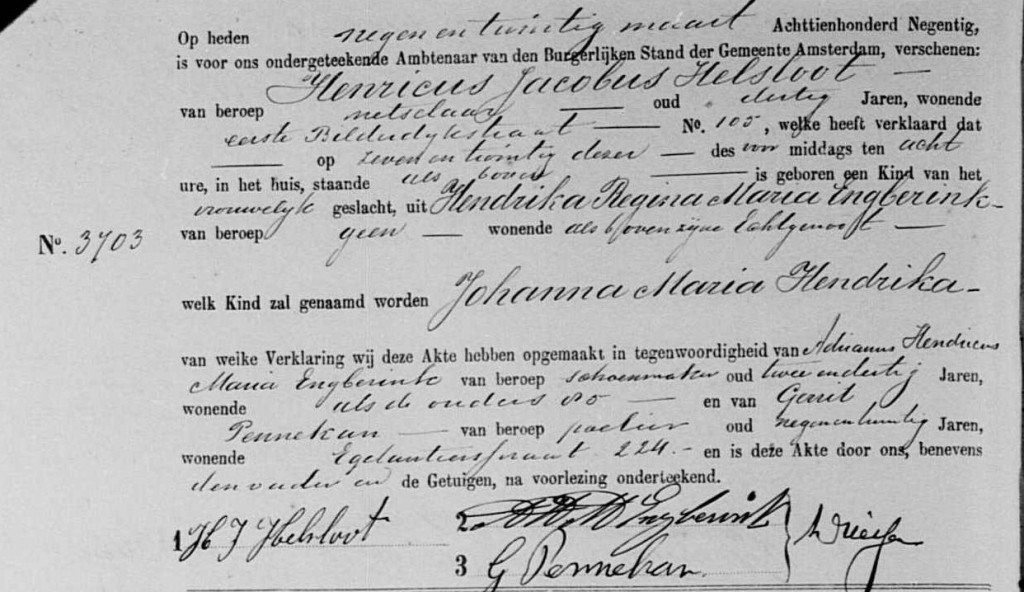 Op heden negen en twintig maart Achttienhonderd Negentig,
is voor ons ondergeteekende Ambtenaar van den Burgerlijken Stand der Gemeente Amsterdam, verschenen:
Henricus Jacobus Helsloot —
van beroep metselaar — oud dertig Jaren, wonende
eerste Bilderdykstraat — No. 105, welke heeft verklaard dat
— op zeven en twintig dezer — des voor middags ten acht
ure, in het huis, staande als boven — is geboren een Kind van het
vrouwelyk geslacht, uit Hendrika Regina Maria Engberink —
van beroep geen — wonende als boven zyne Echtgenoot —
No. 3703
welk Kind zal genaamd worden Johanna Maria Hendrika —
van welke Verklaring wij deze Akte hebben opgemaakt in tegenwoordigheid van Adrianus Hendricus
Maria Engberink van beroep schoenmaker oud twee en dertig Jaren,
wonende als de ouders 80 — en van Gerrit
Pennekan — van beroep oud negen en twintig Jaren,
wonende Egelantiersstraat 224. — en is deze Akte door ons, benevens
den vader en de Getuigen, na voorlezing onderteekend.
1 H J Helsloot
2 A H M Engberink
3 G Pennekan.